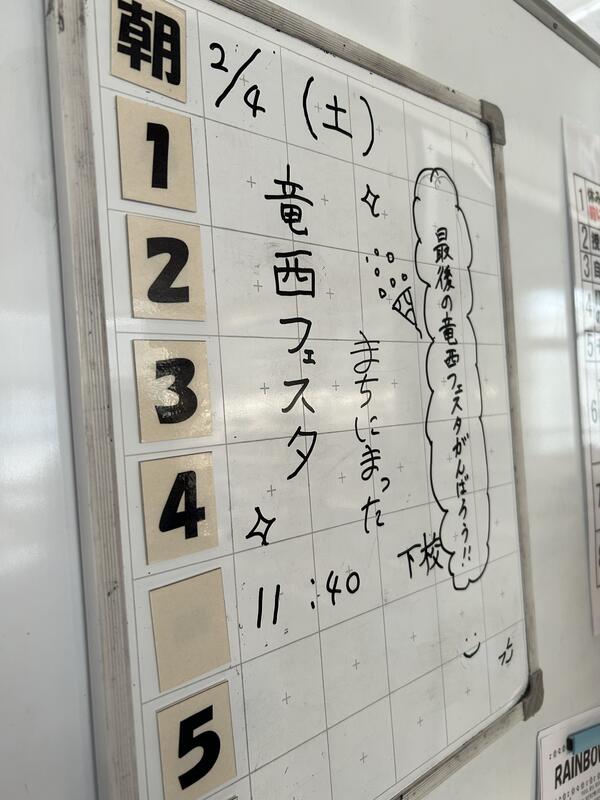 朝
2/4 (土)
1
2
3
4
5
まちにまった
竜西フェスタ
最後の竜西フェスタがんばろう!!
11:40
下校
1
2
3
4
5
6
RAINBOW